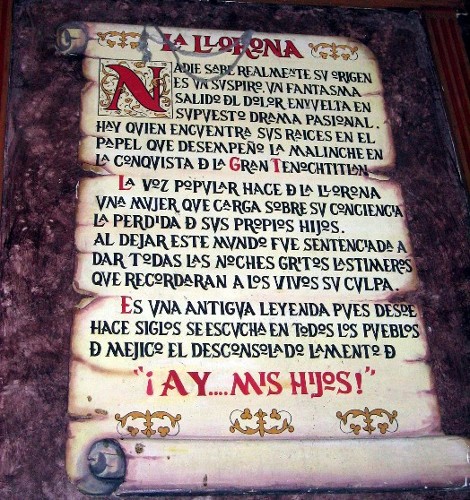 LA LLORONA
NADIE SABE REALMENTE SV ORIGEN
ES VN SVSPIRO, VN FANTASMA
SALIDO DL DOLOR ENVVELTA EN
SVPVESTO DRAMA PASIONAL.
HAY QVIEN ENCVENTRA SVS RAICES EN EL
PAPEL QVE DESEMPEÑO LA MALINCHE EN
LA CONQVISTA D LA GRAN TENOCHTITLAN
LA VOZ POPVLAR HACE D LA LLORONA
VNA MVJER QVE CARGA SOBRE SV CONCIENCIA
LA PERDIDA D SVS PROPIOS HIJOS.
AL DEJAR ESTE MVNDO FVE SENTENCIADA A
DAR TODAS LAS NOCHES GRITOS LASTIMEROS
QVE RECORDARAN A LOS VIVOS SV CVLPA.
ES VNA ANTIGVA LEYENDA PVES DESDE
HACE SIGLOS SE ESCVCHA EN TODOS LOS PVEBLOS
D MEJICO EL DESCONSOLADO LAMENTO D
"¡AY....MIS HIJOS!"